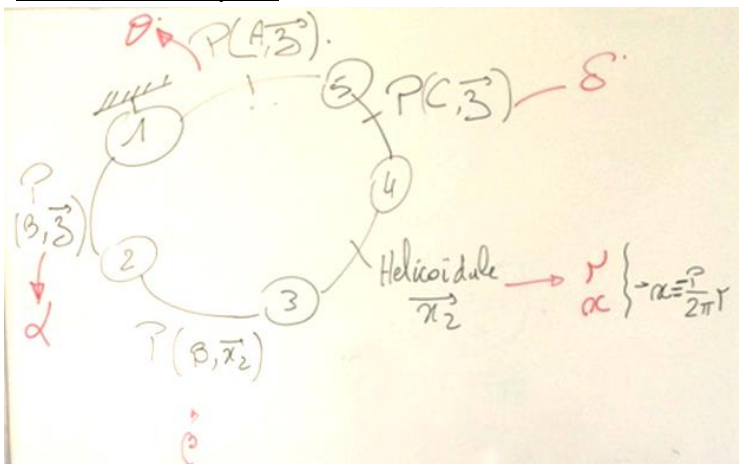 θ̇
P(A,z⃗).
1
5
P(C,z⃗)
δ̇
P
(B,z⃗)
α̇
2
4
3
Helicoïdale
x⃗₂
γ
x
} → x = P/2π γ
P(B,x⃗₂)